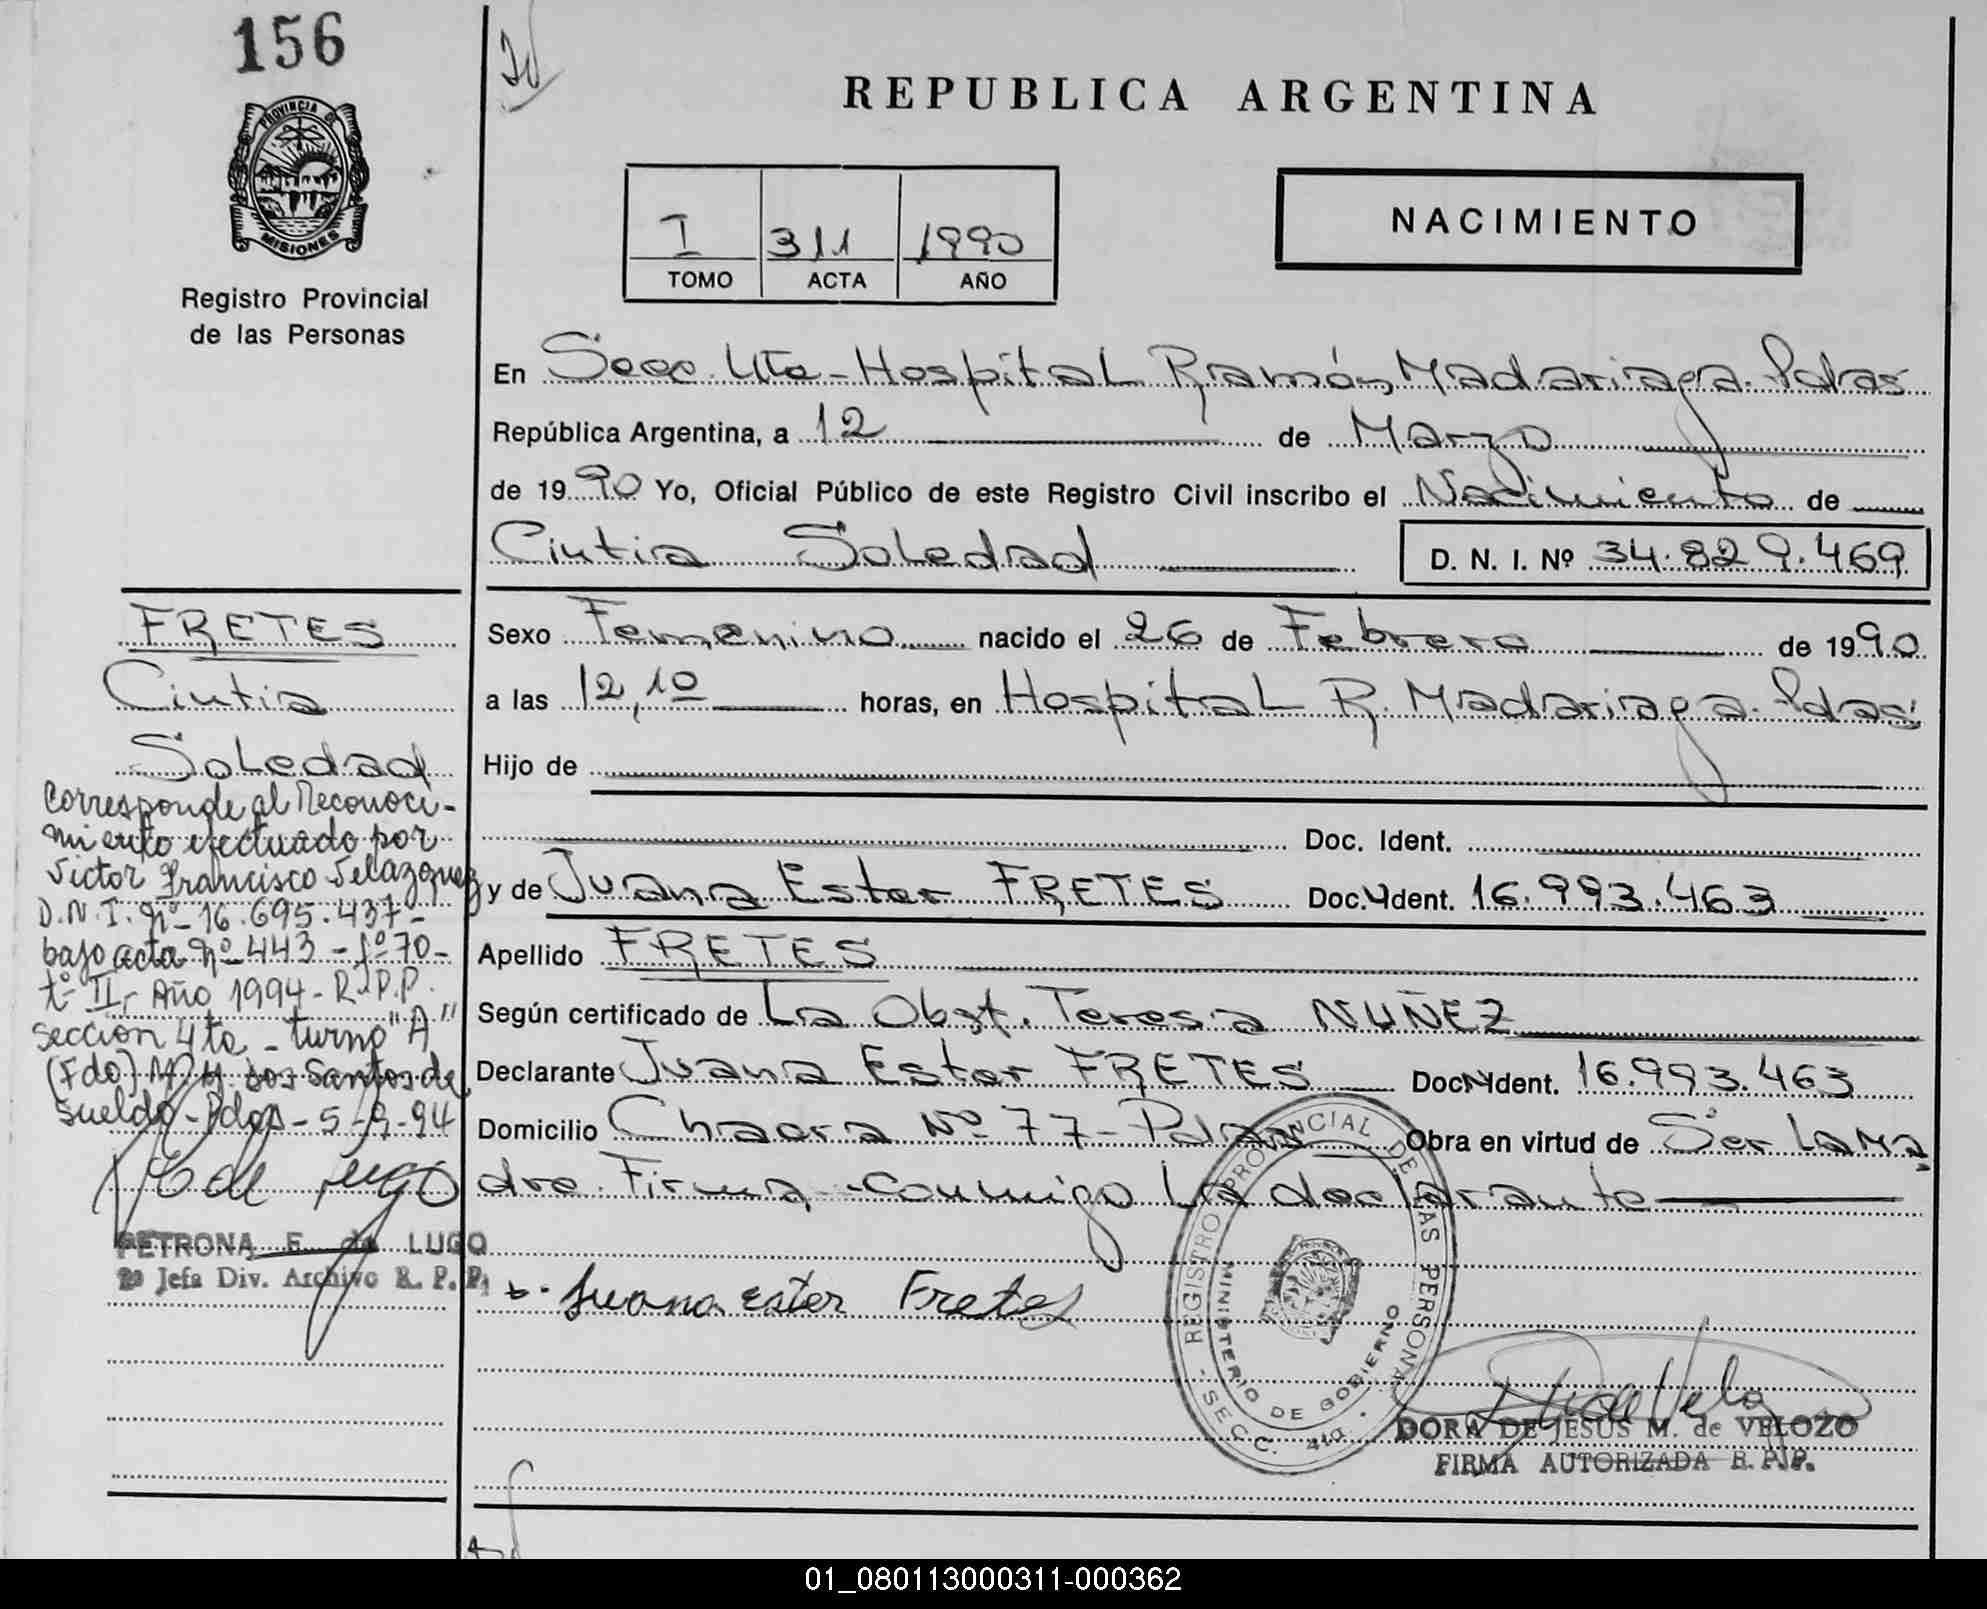 156
PROVINCIA DE
MISIONES
Registro Provincial
de las Personas
REPUBLICA ARGENTINA
I 311 1990
TOMO ACTA AÑO
NACIMIENTO
En Secc. 4ta - Hospital Ramón Madariaga. Pdas
República Argentina, a 12 de Marzo
de 1990 Yo, Oficial Público de este Registro Civil inscribo el Nacimiento de
Cintia Soledad D. N. I. Nº 34.829.469
Sexo Femenino nacido el 26 de Febrero de 1990
a las 12,10 horas, en Hospital R. Madariaga. Pdas
Hijo de
Doc. Ident.
y de Juana Ester FRETES Doc. Ident. 16.993.463
Apellido FRETES
Según certificado de La Obst. Teresa NUÑEZ
Declarante Juana Ester FRETES Doc. Ident. 16.993.463
Domicilio Chacra Nº 77 - Pdas Obra en virtud de Ser La Ma
dre. Firma conmigo La declarante
Juana Ester Fretes
REGISTRO PROVINCIAL DE LAS PERSONAS
MINISTERIO DE GOBIERNO
SECC. 4ta
DORA DE JESUS M. de VELOZO
FIRMA AUTORIZADA R. P. P.
FRETES
Cintia
Soledad
Corresponde al Reconoci-
miento efectuado por
Victor Francisco Velazquez
D.N.I. nº 16.695.437-
bajo acta nº 443 - fº 70 -
tº II - Año 1994 - R.P.P.
sección 4ta - turno "A"
(Fdo) M. dos Santos de
Sueldo - Pdas - 5-9-94
PETRONA E. de LUGO
Jefa Div. Archivo R. P. P.
01_080113000311-000362